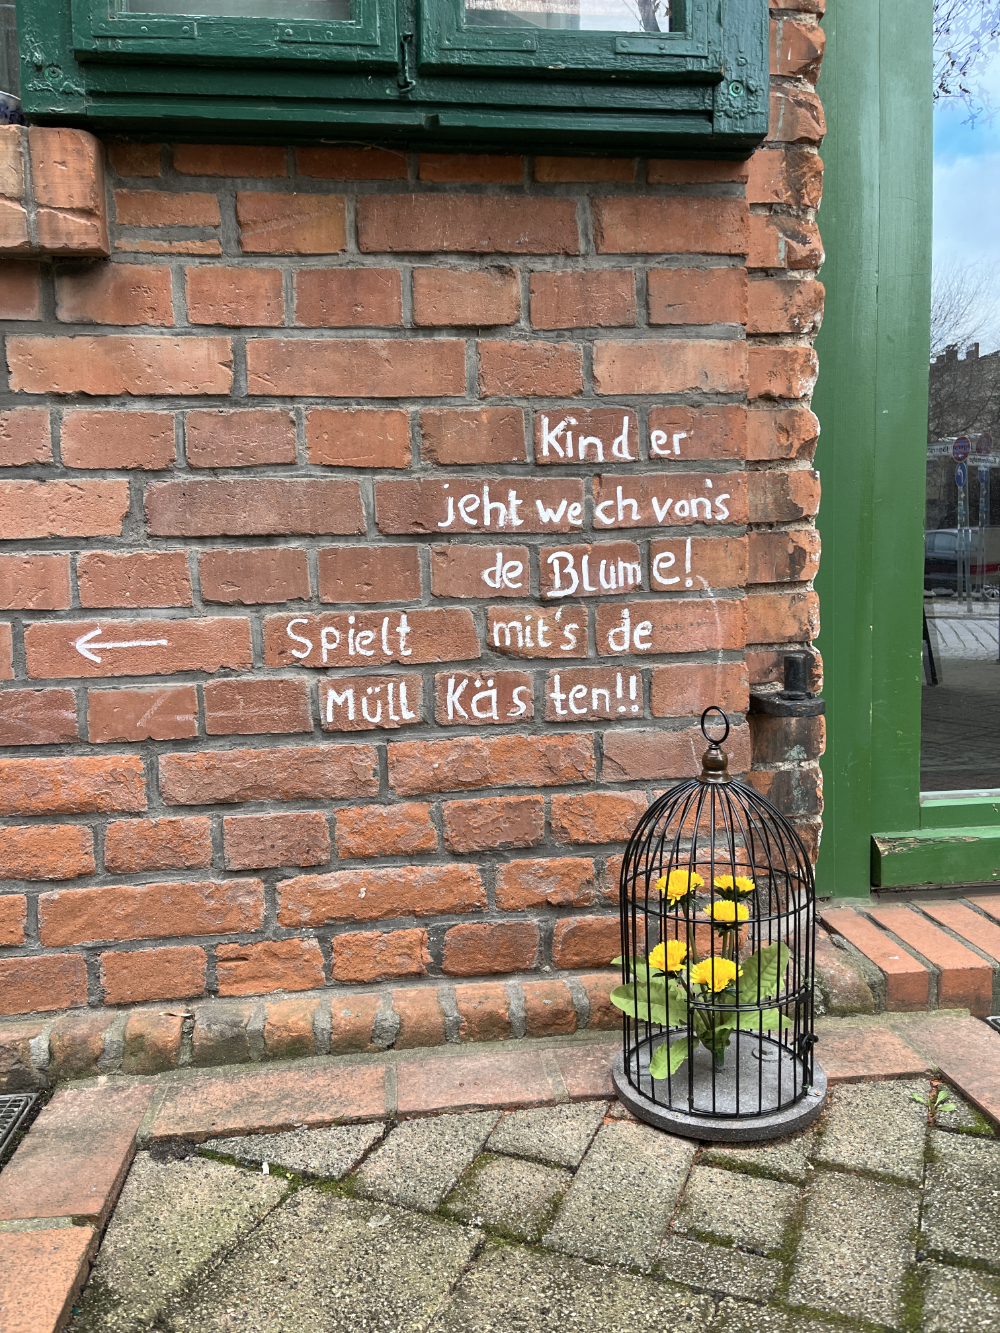 Kinder
jeht wech von's
de Blume!
Spielt mit's de
Müll Kästen!!